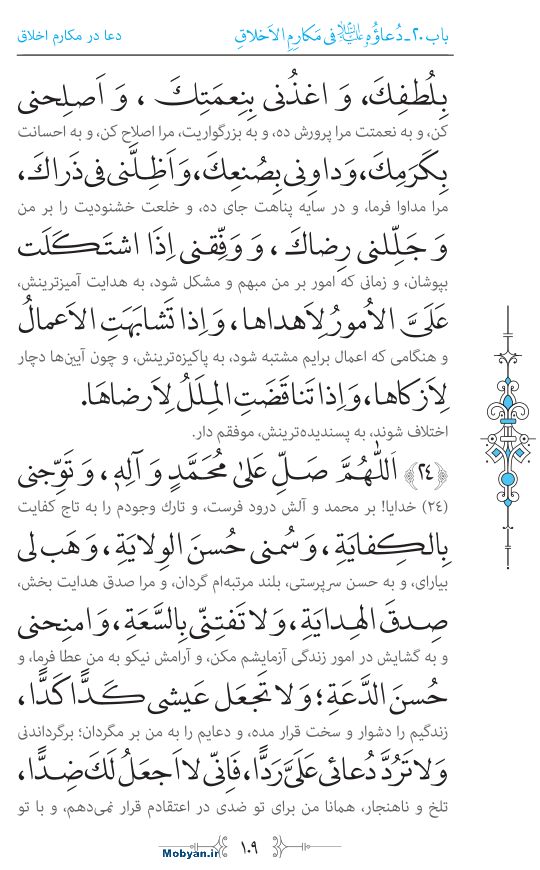 باب ۲۰ـ دُعاؤُهُ علیه‌السلام فی مَکارِمِ الاَخلاقِ
دعا در مکارم اخلاق
بِلُطفِكَ، وَ اغذُنی بِنِعمَتِكَ ، وَ اَصلِحنی
کن، و به نعمتت مرا پرورش ده، و به بزرگواریت، مرا اصلاح کن، و به احسانت
بِکَرَمِكَ، وَداوِنی بِصُنعِكَ، وَاَظِلَّنی فی ذَراكَ،
مرا مداوا فرما، و در سایه پناهت جای ده، و خلعت خشنودیت را بر من
وَ جَلِّلنی رِضاكَ ، وَ وَفِّقنی اِذَا اشتَکَلَت
بپوشان، و زمانی که امور بر من مبهم و مشکل شود، به هدایت آمیزترینش،
عَلَیَّ الاُمورُ لِاَهداها، وَ اِذا تَشابَهَتِ الاَعمالُ
و هنگامی که اعمال برایم مشتبه شود، به پاکیزه‌ترینش، و چون آیین‌ها دچار
لِاَزکاها، وَاِذا تَناقَضَتِ المِلَلُ لِاَرضاها.
اختلاف شوند، به پسندیده‌ترینش، موفقم دار.
﴿۲۴﴾ اَللّٰهُمَّ صَلِّ عَلیٰ مُحَمَّدٍ وَ آلِهٖ، وَ تَوِّجنی
(۲۴) خدایا! بر محمد و آلش درود فرست، و تارك وجودم را به تاج کفایت
بِالکِفایَةِ، وَ سُمنی حُسنَ الوِلایَةِ، وَ هَب لی
بیارای، و به حسن سرپرستی، بلند مرتبه‌ام گردان، و مرا صدق هدایت بخش،
صِدقَ الهِدایَةِ، وَ لا تَفتِنّی بِالسَّعَةِ، وَ امنِحنی
و به گشایش در امور زندگی آزمایشم مکن، و آرامش نیکو به من عطا فرما، و
حُسنَ الدَّعَةِ؛ وَ لا تَجعَل عَیشی کَدًّا کَدًّا ،
زندگیم را دشوار و سخت قرار مده، و دعایم را به من بر مگردان؛ برگرداندنی
وَ لا تَرُدَّ دُعائی عَلَیَّ رَدًّا، فَاِنّی لا اَجعَلُ لَكَ ضِدًّا،
تلخ و ناهنجار، همانا من برای تو ضدی در اعتقادم قرار نمی‌دهم، و با تو
۱۰۹
Mobyan.ir